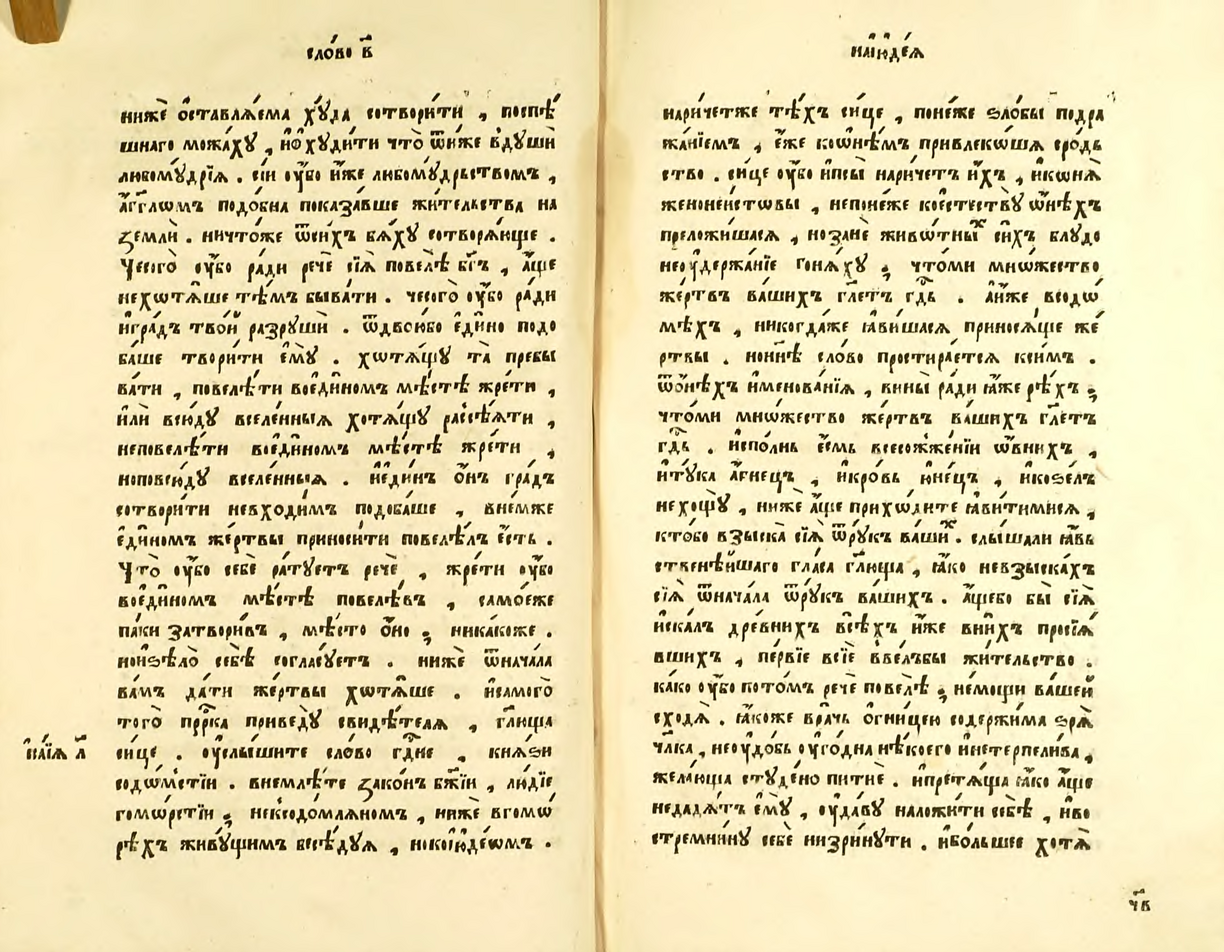 сло́во в҃
нижѐ ѡ҆ставлѧ́ема хꙋ́да сотвори́ти , поспѣ́
шнаго можа́хꙋ , и҆ѻ҆хꙋди́ти что̀ ѿни́же вдꙋшѝ
любомꙋ́дрїѧ . сі́и ᲂу҆́бо и҆́же любомꙋ́дрьством̾ ,
а҆́гг҃лѡмъ подо́бна показа́вше жи́тельства на
землѝ . ничто́же ѿси́хъ бѧ́хꙋ сотворѧ́юще .
Чесого̀ ᲂу҆́бо ра́ди речѐ сїѧ̀ повелѣ̀ бг҃ъ , а҆́ще
нехѡтѧ́ше тѣ́мъ быва́ти . чесого̀ ᲂу҆́бо ра́ди
и҆гра́дъ тво́й разрꙋшѝ . ѿдвои́бо є҆ди́но подо
ба́ше твори́ти є҆мꙋ̀ . хѡтѧ́щꙋ та̀ пребы
ва́ти , повелѣ́ти воє҆ди́номъ мѣ́стѣ жре́ти ,
и҆лѝ всю́дꙋ вселе́нныѧ хотѧ́щꙋ разсѣ́ѧти ,
неповелѣ́ти воє҆ди́номъ мѣ́стѣ жре́ти ,
ноповсю́дꙋ вселе́нныѧ . и҆є҆ди́нъ ѻ҆́нъ гра́дъ
сотвори́ти невхо́димъ подоба́ше , вне́мже
є҆ди́номъ же́ртвы приноси́ти повелѣ́лъ є҆́сть .
Что̀ ᲂу҆́бо себѐ ра́тꙋетъ речѐ , жре́ти ᲂу҆́бо
воє҆ди́номъ мѣ́стѣ повелѣ́въ , само́еже
па́ки затвори́въ , мѣ́сто ѻ҆́но ; ника́коже .
нои҆ѕѣлѡ̀ себѣ̀ согласꙋ́етъ . нижѐ ѿнача́ла
ва́мъ да́ти же́ртвы хѡтѧ́ше . и҆самого̀
того̀ прⷪ҇рка приведꙋ̀ свидѣ́телѧ , гл҃юща
и҆са́їѧ а҃
си́це . ᲂу҆слы́шите сло́во гдⷭ҇не , кнѧ́ѕи
содѡ́мстїи . внемлѣ́те зако́нъ бж҃їи , лю́дїе
гомѡ́рстїи ; некссодо́млѧномъ , нижѐ вгомѡ́
рѣхъ живꙋ́щимъ бесѣ́дꙋѧ , нокоі҆ꙋде́ѡмъ .
наі҆ꙋде́ѧ
нарече́тже тѣ́хъ си́це , поне́же ѕло́бы подра
жа́нїемъ , є҆́же коѡ҆нѣ́мъ привлеко́шѧ сро́дь
ство . си́це ᲂу҆́бо и҆псы̀ нарече́тъ и҆́хъ , и҆ко́нѧ
женонеи́стовы , непоне́же коестествꙋ̀ ѡ҆нѣ́хъ
преложи́шасѧ , нозанѐ живѡ́тныⷯ си́хъ блꙋдо
неᲂу҆держа́нїе гонѧ́хꙋ ; что́ми мнѡ́жество
же́ртвъ ва́шихъ гл҃етъ гдⷭ҇ь . а҆и҆́же всодѡ́
мѣхъ , никогда́же ꙗ҆ви́шасѧ приносѧ́ще же́
ртвы . нони́нѣ сло́во простира́етсѧ кси́мъ .
ѿо́нѣхъ и҆менова́нїѧ , вины̀ ра́ди ꙗ҆́же рѣ́хъ ;
что́ми мнѡ́жество же́ртвъ ва́шихъ гл҃етъ
гдⷭ҇ь . и҆спо́лнь є҆́смь всесожже́нїи ѻ҆́вних̾ ,
и҆тꙋ́ка а҆́гнецъ , и҆кро́вь ю҆не́цъ , и҆козе́лъ
нехощꙋ̀ , нижѐ а҆́ще прихѡ́дите ꙗ҆ви́тимисѧ ,
кто́бо взыска̀ сїѧ̀ ѿрꙋ́къ ва́шиⷯ . слы́шали ꙗ҆́вь
ственѣ́йшаго гла́са гл҃юща , ꙗ҆́ко невзыска́хъ
сїѧ̀ ѿнача́ла ѿрꙋ́къ ва́шихъ . а҆́щебо бы̀ сїѧ̀
и҆ска́лъ дре́внихъ всѣ́хъ и҆́же вни́хъ просїѧ́
вшихъ , пе́рвїе всїѐ ввѣ́лъбы жи́тельство .
ка́ко ᲂу҆́бо пото́мъ речѐ повелѣ̀ ; не́мощи ва́шей
сходѧ̀ . ꙗ҆́коже вра́чь ѻ҆гни́цею содержи́ма ѕрѧ̀
чл҃ка , неᲂу҆до́бь ᲂу҆го́дна нѣ́коего и҆нетерпели́ва ,
жела́юща стꙋ́дено питиѐ . и҆претѧ́ща ꙗ҆́ко а҆́ще
недадѧ́тъ є҆мꙋ̀ , ᲂу҆да́вꙋ наложи́ти себѣ̀ , и҆во
стремни́нꙋ себѐ низри́нꙋти . и҆бо́льшее хотѧ̀
чв҃